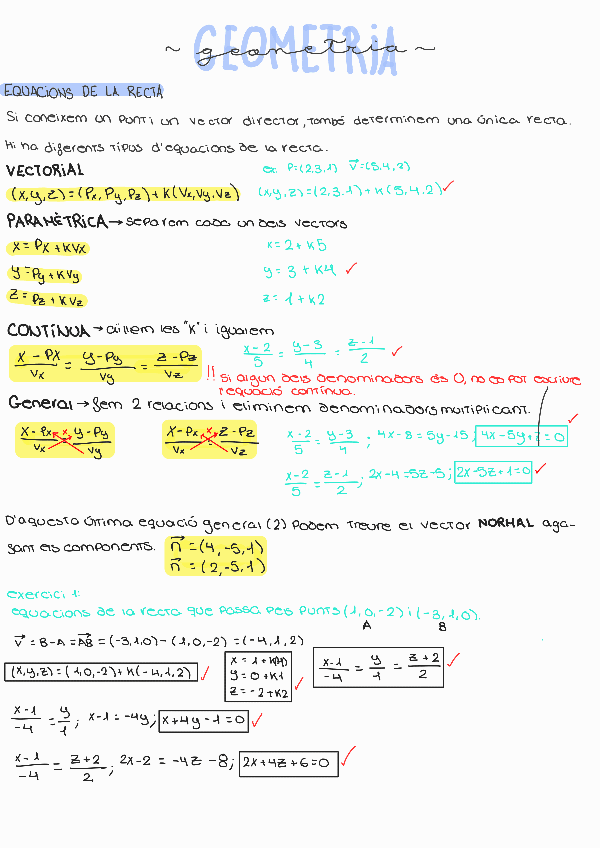 GEOMETRIA
~ geometria ~
EQUACIONS DE LA RECTA
Si coneixem un punt i un vector director, també determinem una única recta.
Hi ha diferents tipus d'equacions de la recta.
VECTORIAL
ex: P=(2,3,1) V⃗=(5,4,2)
(x,y,z)=(Px,Py,Pz)+K(Vx,Vy,Vz)
(x,y,z)=(2,3,1)+K(5,4,2) ✓
PARAMÈTRICA → separem cada un dels vectors
x = Px + KVx
x = 2 + K5
y = Py + KVy
y = 3 + K4 ✓
z = Pz + KVz
z = 1 + K2
CONTÍNUA → aïllem les "K" i igualem
x - Px / Vx = y - Py / Vy = z - Pz / Vz
x-2 / 5 = y-3 / 4 = z-1 / 2 ✓
!! Si algun dels denominadors és 0, no es pot escriure
l'equació contínua.
General → fem 2 relacions i eliminem denominadors multiplicant.
x - Px / Vx = y - Py / Vy
x - Px / Vx = z - Pz / Vz
x-2 / 5 = y-3 / 4 ; 4x-8 = 5y-15; 4x-5y+7=0 ✓
x-2 / 5 = z-1 / 2 ; 2x-4=5z-5; 2x-5z+1=0 ✓
D'aquesta última equació general (2) podem treure el vector NORMAL aga-
fant els components. n⃗ = (4,-5,1)
n⃗ = (2,-5,1)
exercici 1:
equacions de la recta que passa pels punts (1,0,-2) i (-3,1,0).
A B
V⃗ = B-A = AB⃗ = (-3,1,0) - (1,0,-2) = (-4,1,2)
(x,y,z) = (1,0,-2) + K(-4,1,2) ✓
y = 0 + K1
z = -2 + K2 ✓
x-1 / -4 = y / 1 = z+2 / 2 ✓
x-1 / -4 = y / 1 ; x-1 = -4y; x+4y-1=0 ✓
x-1 / -4 = z+2 / 2 ; 2x-2 = -4z -8; 2x+4z+6=0 ✓